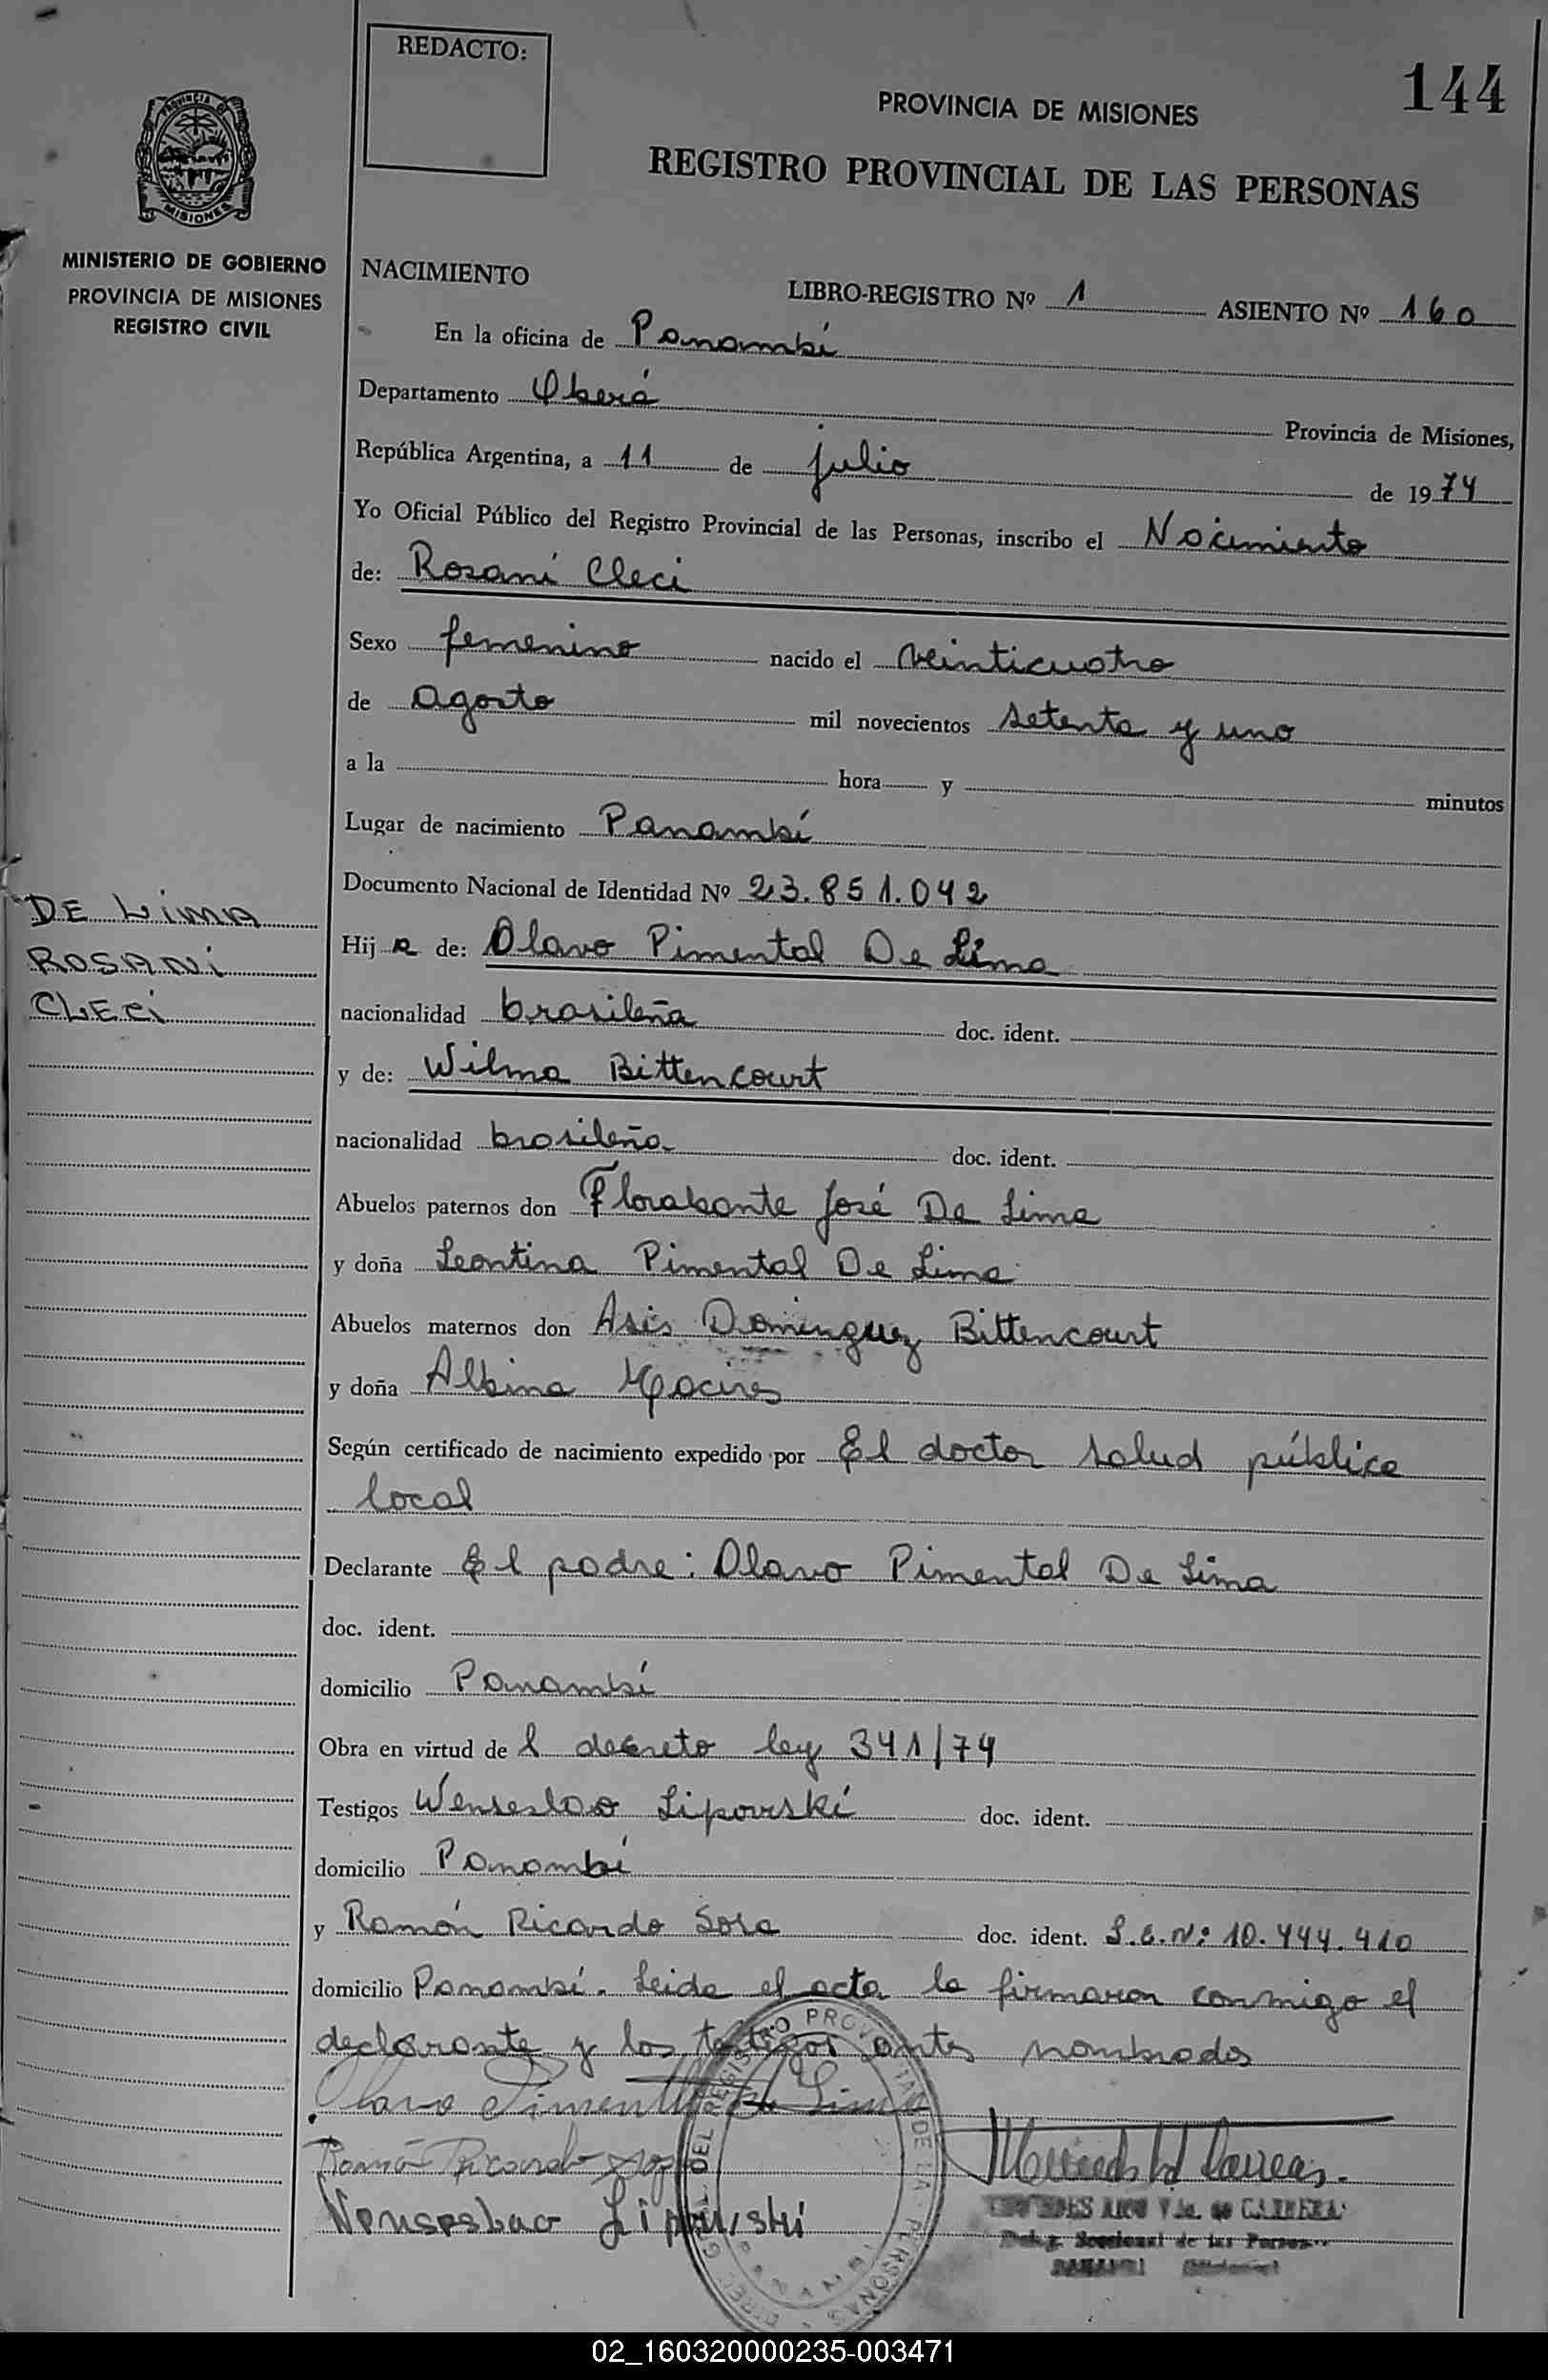 REDACTO:
144
PROVINCIA DE MISIONES
REGISTRO PROVINCIAL DE LAS PERSONAS
PROVINCIA DE
MISIONES
MINISTERIO DE GOBIERNO
PROVINCIA DE MISIONES
REGISTRO CIVIL
NACIMIENTO
LIBRO-REGISTRO Nº 1 ASIENTO Nº 160
En la oficina de Panambí
Departamento Oberá Provincia de Misiones,
República Argentina, a 11 de julio de 1974
Yo Oficial Público del Registro Provincial de las Personas, inscribo el Nacimiento
de: Rosani Cleci
Sexo femenino nacido el veinticuatro
de agosto mil novecientos setenta y uno
a la hora y minutos
Lugar de nacimiento Panambí
Documento Nacional de Identidad Nº 23.851.042
DE LIMA
ROSANI
CLECI
Hija de: Olavo Pimental De Lima
nacionalidad brasileña doc. ident.
y de: Wilma Bittencourt
nacionalidad brasileña doc. ident.
Abuelos paternos don Florabante José De Lima
y doña Leontina Pimental De Lima
Abuelos maternos don Asis Dominguez Bittencourt
y doña Albina
Según certificado de nacimiento expedido por El doctor salud pública
local
Declarante El padre: Olavo Pimental De Lima
doc. ident.
domicilio Panambí
Obra en virtud de l decreto ley 341/74
Testigos Wenseslao Lipovski doc. ident.
domicilio Panambí
y Ramón Ricardo Sosa doc. ident. L.E.N: 10.444.410
domicilio Panambí. Leida el acta la firmaron conmigo el
declarante y los testigos antes nombrados
Olavo Pimental de Lima
Ramón Ricardo
Wenseslao Lipovski
DE CARRERA
Seccional de las Person
PANAMBI (Misiones)
REGISTRO PROVINCIAL DE LAS PERSONAS
PANAMBI
02_160320000235-003471